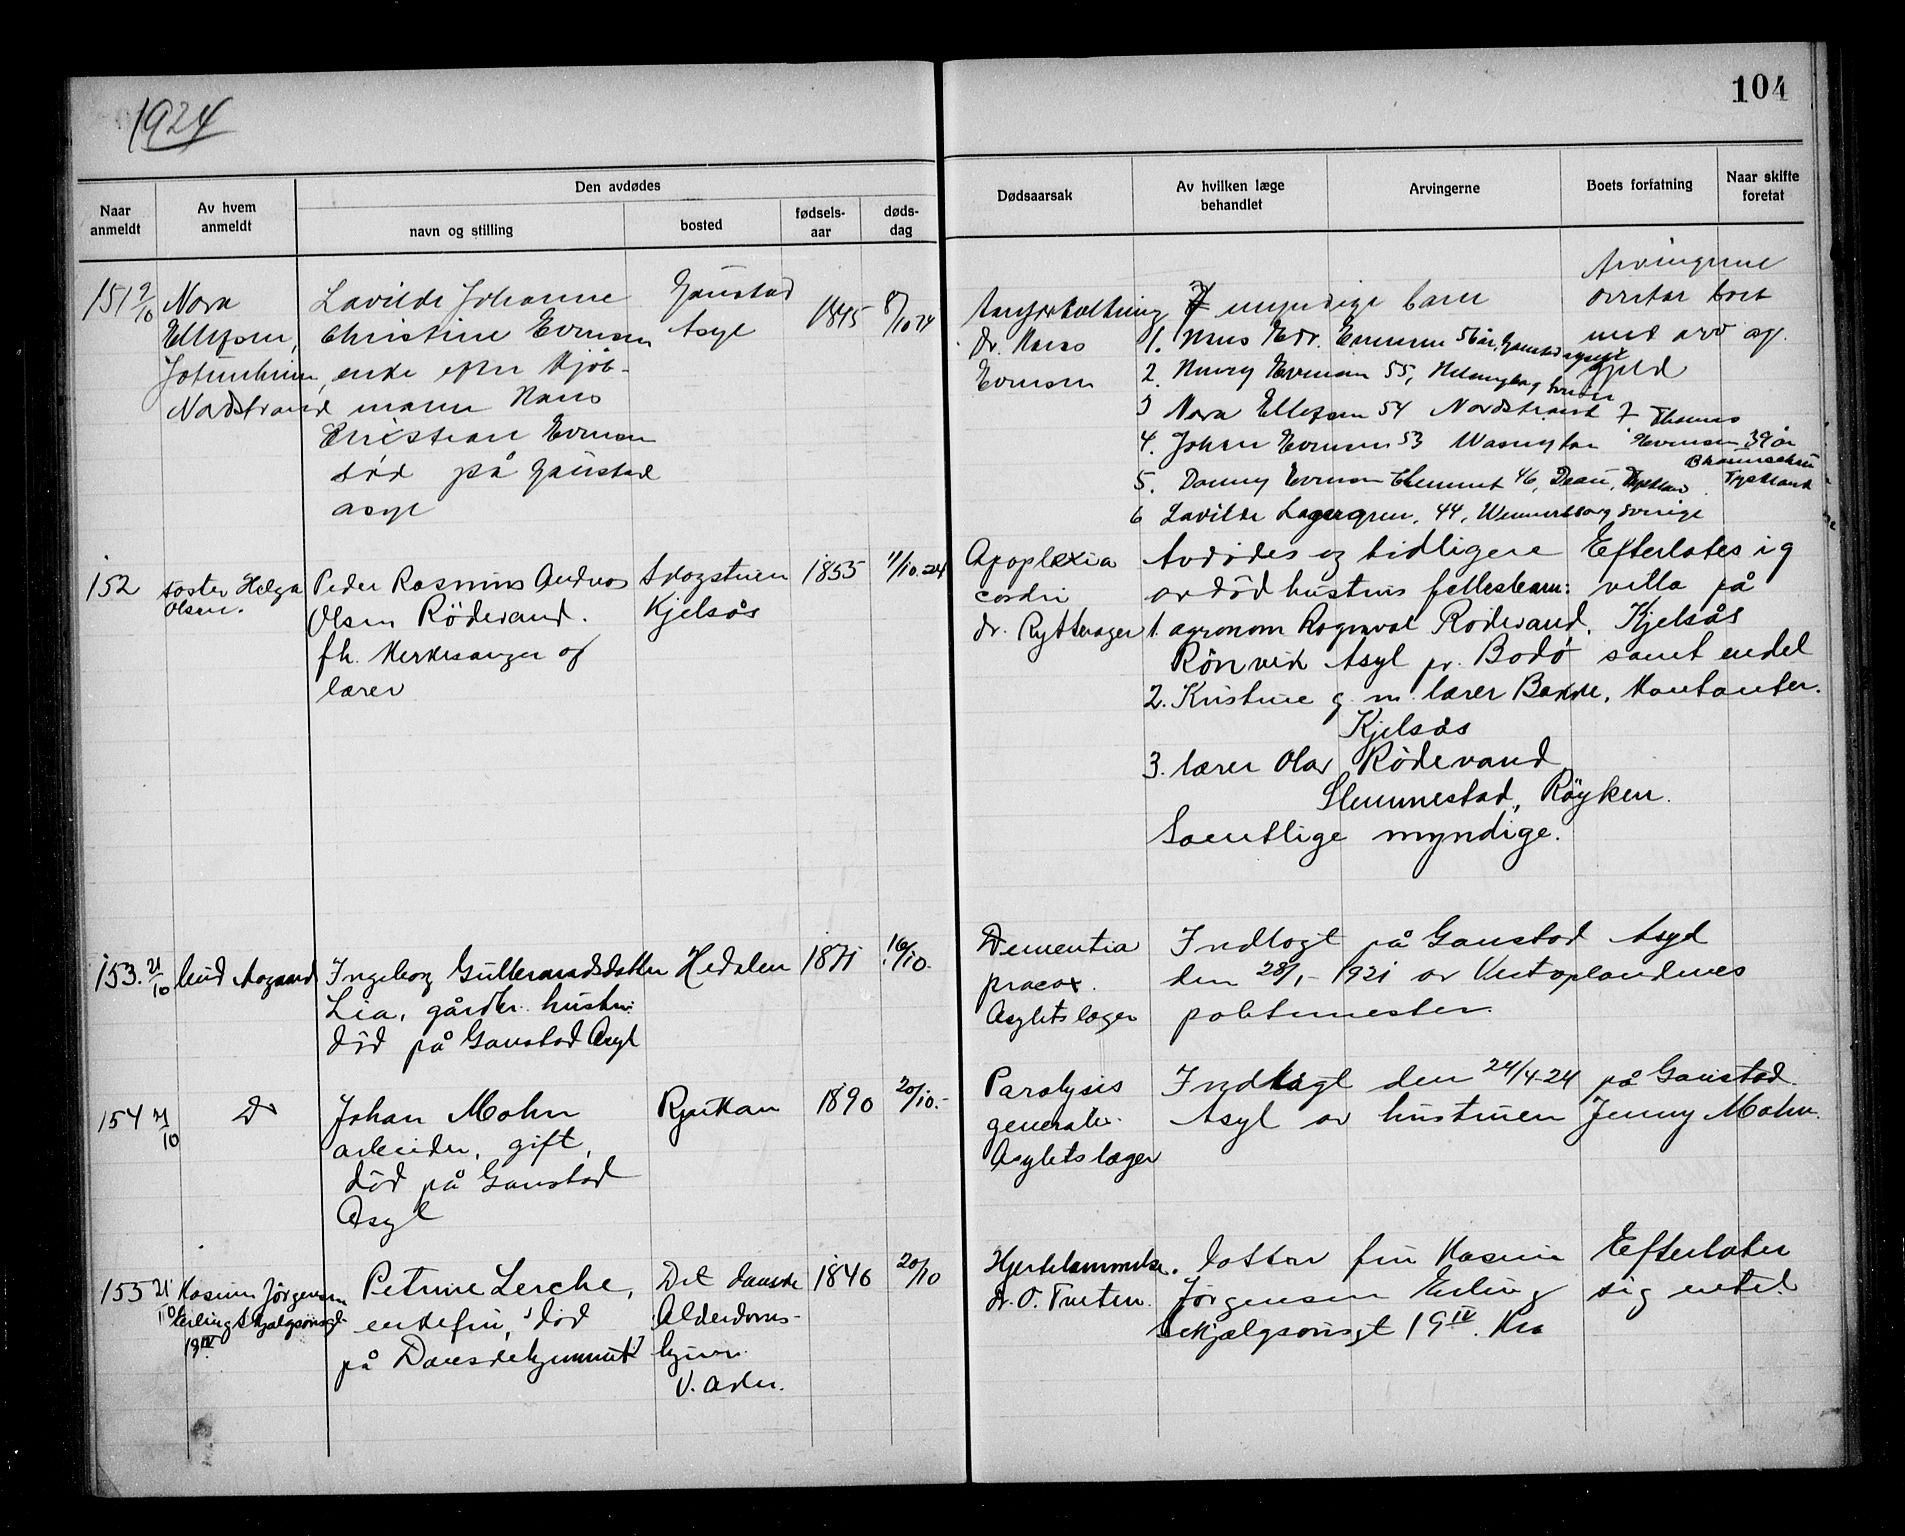 1924
104
Naar anmeldt
Av hvem anmeldt
Den avdødes
navn og stilling
bosted
fødsels-aar
døds-dag
Dødsaarsak
Av hvilken læge behandlet
Arvingerne
Boets forfatning
Naar skifte foretat
151 9/10 Nora Lavilde Johanne Gaustad 1845 8/10 24
Ellefsen, Christine Evensen Asyl
enke efter Kjøb-
Nordstrand mann Hans
Christian Evensen
død på Gaustad
asyl
Aareforkalkning 7 myndige barn
Dr. Hans
Evensen
1. Hans Edv. Evensen 56 år, Gaustad asyl
2. Evensen 55,
3 Nora Ellefsen 54 Nordstrand
4. Johan Evensen 53
5. Danny Evensen 46,
6 Lavilde Lagergren, 44, Wennersborg Sverige
7 Thomas
Evensen 39 år
Tyskland
Arvingerne
overtar boet
med arv og
gjeld
152 søster Helga Peder Rasmus Andreas Skogstuen 1853 11/10.24
Olsen. Olsen Rødevand. Kjelsås
fh. Kirkesanger og
lærer
Apoplexia Avdødes og tidligere Efterlates ig
cordis avdød hustrus fellesbarn: villa på
dr. Rytterager 1. agronom Ragnvald Rødevand, Kjelsås
Rønvik Asyl pr. Bodø samt endel
2. Kristine g. m. lærer Bakke, Kontanter.
Kjelsås
3. lærer Olav Rødevand
Slemmestad, Røyken.
Samtlige myndige.
153. 21/10 Aagaard Ingeborg Gulbrandsdatter Hedalen 1871 16/10.
Lia, gårdbr. hustru
død på Gaustad Asyl
Dementia Indlagt på Gaustad Asyl
præcox. den 28/1 - 1921 av Vestoplandenes
Asylets læger politimester.
154 21/10 Do Johan Mohn Rjukan 1890 20/10.-
arbeider, gift,
død på Gaustad
Asyl
Paralysis Indlagt den 24/4-24 på Gaustad
generalis. Asyl av hustruen Jenny Mohn.
Asylets læger
155 21/10 Jørgensen Petrine Lerche, Det danske 1846 20/10
Erling Skjalgsønsgt. enkefru, død Alderdoms-
19IV på Danskehjemmet hjem.
V. Aker.
Hjertelammelse. datter fru Jørgensen Erling
Skjalgsønsgt 19IV. Kra
Efterlater
sig endel